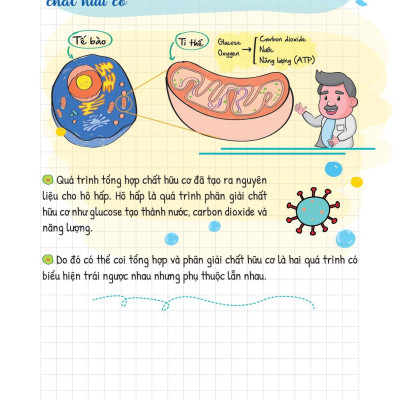 chất hữu cơ
Tế bào
Ti thể
Glucose
Oxygen
Carbon dioxide
Nước
Năng lượng (ATP)
Quá trình tổng hợp chất hữu cơ đã tạo ra nguyên
liệu cho hô hấp. Hô hấp là quá trình phân giải chất
hữu cơ như glucose tạo thành nước, carbon dioxide và
năng lượng.
Do đó có thể coi tổng hợp và phân giải chất hữu cơ là hai quá trình có
biểu hiện trái ngược nhau nhưng phụ thuộc lẫn nhau.